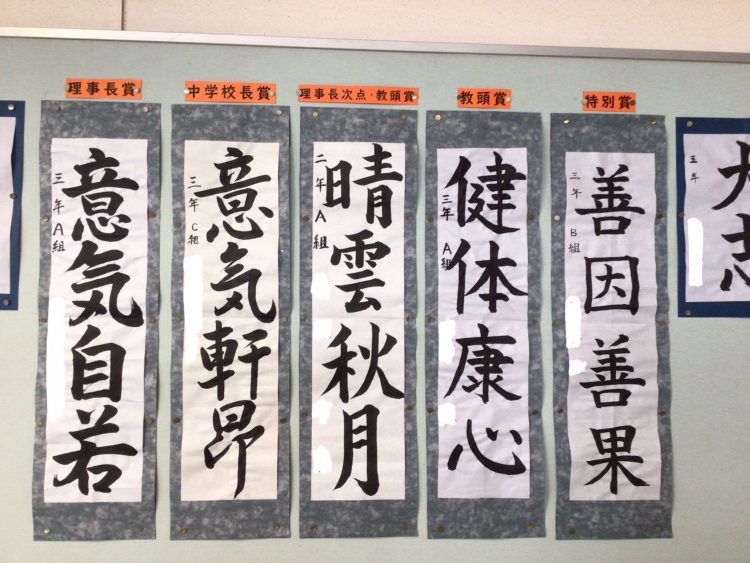 理事長賞
意気自若
三年A組
中学校長賞
意気軒昂
三年C組
理事長次点・教頭賞
晴雲秋月
二年A組
教頭賞
健体康心
三年A組
特別賞
善因善果
三年B組
大志
五年